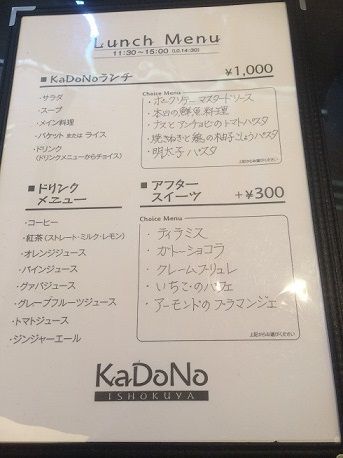 Lunch Menu
11:30～15:00 (LO.14:30)
■KaDoNoランチ ¥1,000
・サラダ
・スープ
・メイン料理
・バケット または ライス
・ドリンク
(ドリンクメニューからチョイス)
Choice Menu
・ポークソテーマスタードソース
・本日の鮮魚料理
・ナスとアンチョビのトマトパスタ
・焼きねぎと鶏の柚子こしょうパスタ
・明太子パスタ
上記からお選びください
■ドリンクメニュー
・コーヒー
・紅茶 (ストレート・ミルク・レモン)
・オレンジジュース
・パインジュース
・グァバジュース
・グレープフルーツジュース
・トマトジュース
・ジンジャーエール
■アフタースイーツ +¥300
Choice Menu
・ティラミス
・ガトーショコラ
・クレームブリュレ
・いちごのパフェ
・アーモンドのブラマンジェ
上記からお選びください
KaDoNo
ISHOKUYA